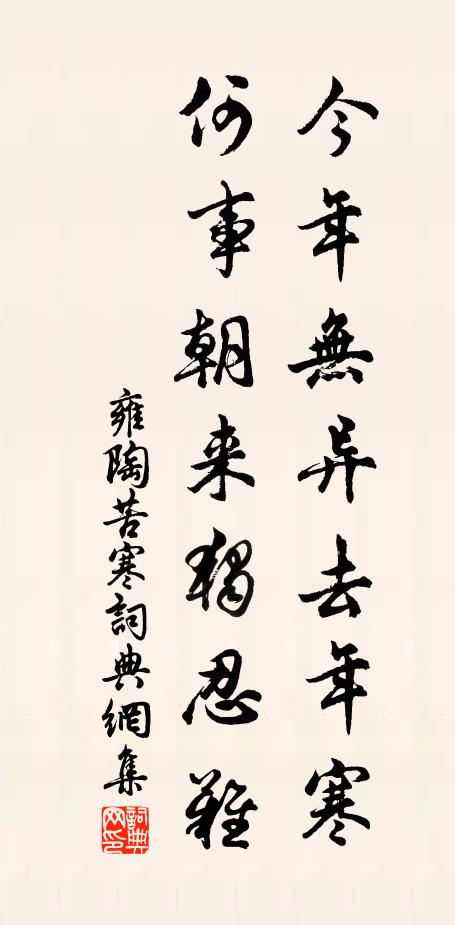 今年無异去年寒
何事朝来獨忍難
雍陶苦寒詞典網集
詞典網印